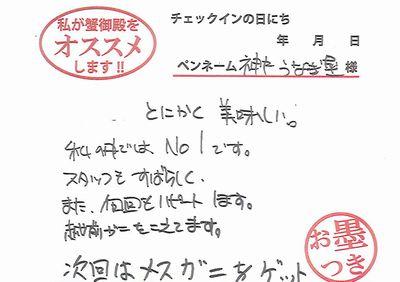 私が蟹御殿を
オススメ
します!!
チェックインの日にち
年 月 日
ペンネーム 神戸うなぎ 様
とにかく 美味しい。
私の中では、No1です。
スタッフもすばらしく、
また、何回もリピートします。
越前ガニをこえてます。
次回はメスガニをゲット
お墨
つき